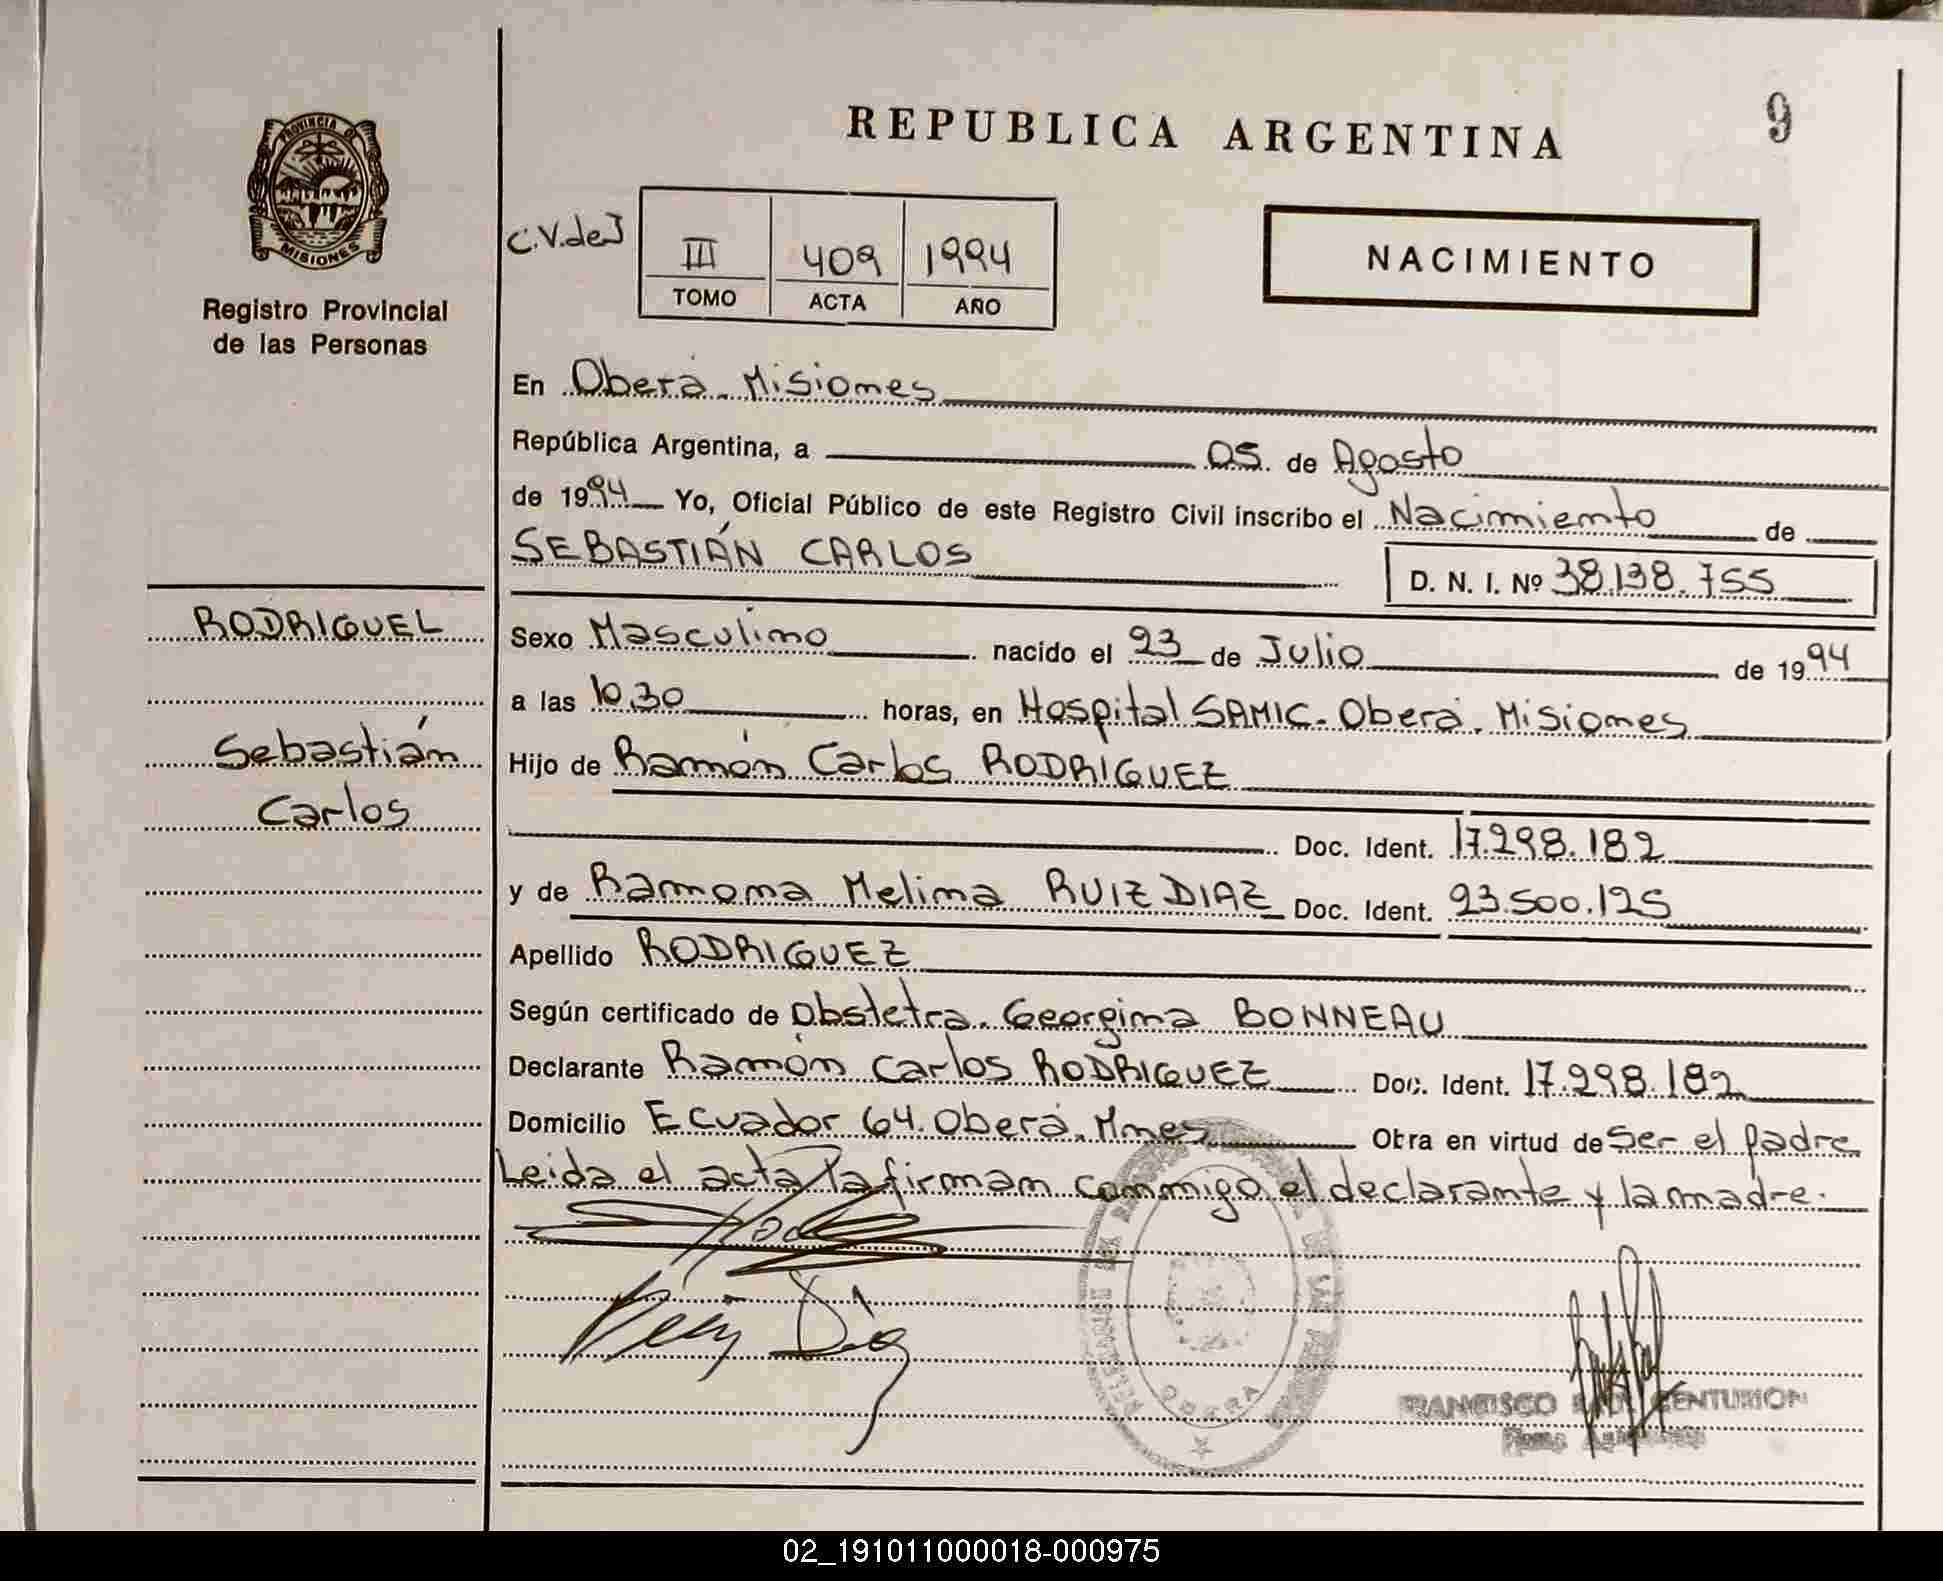 REPUBLICA ARGENTINA
9
PROVINCIA DE
MISIONES
Registro Provincial
de las Personas
C.V.deJ
III 409 1994
TOMO ACTA AÑO
NACIMIENTO
En Oberá. Misiones
República Argentina, a 05. de Agosto
de 1994 Yo, Oficial Público de este Registro Civil inscribo el Nacimiento de
SEBASTIÁN CARLOS
D. N. I. Nº 38.138.755
RODRIGUEL
Sebastián
Carlos
Sexo Masculino nacido el 23 de Julio de 1994
a las 10.30 horas, en Hospital SAMIC. Oberá. Misiones
Hijo de Ramón Carlos RODRIGUEZ
Doc. Ident. 17.298.182
y de Ramona Melina RUIZ DIAZ Doc. Ident. 23.500.125
Apellido RODRIGUEZ
Según certificado de Obstetra. Georgina BONNEAU
Declarante Ramón Carlos RODRIGUEZ Doc. Ident. 17.298.182
Domicilio Ecuador 64. Oberá. Mnes Obra en virtud de Ser el padre
Leida el acta la firman conmigo el declarante y la madre.
OBERA
FRANCISCO CENTURION
02_191011000018-000975